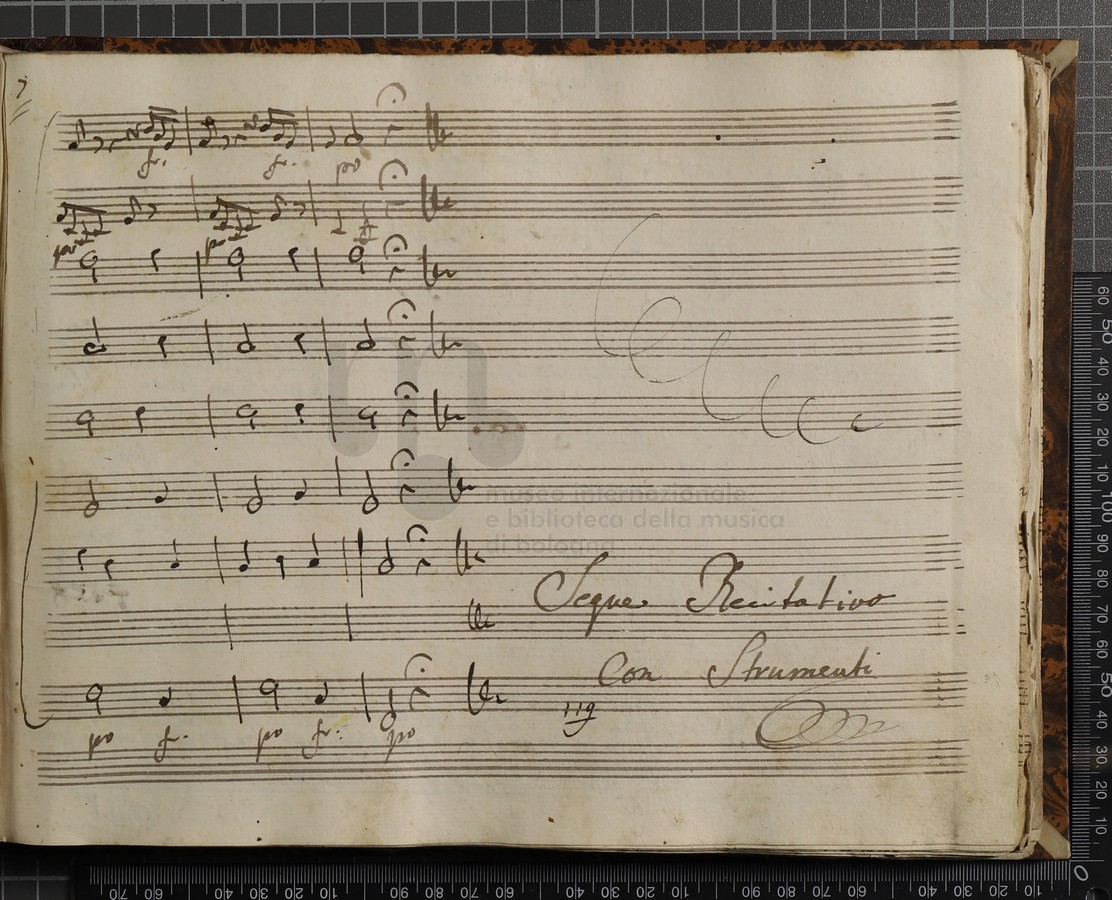 fr. fr. po
po po
museo internazionale
e biblioteca della musica
di bologna
Segue Recitativo
Con Strumenti
119
po fr. po fr. po
60 50 40 30 20 10 100 90 80 70 60 50 40 30 20 10 0
70 60 50 40 30 20 10 90 80 70 60 50 40 30 20 10 90 80 70 60 50 40 30 20 10